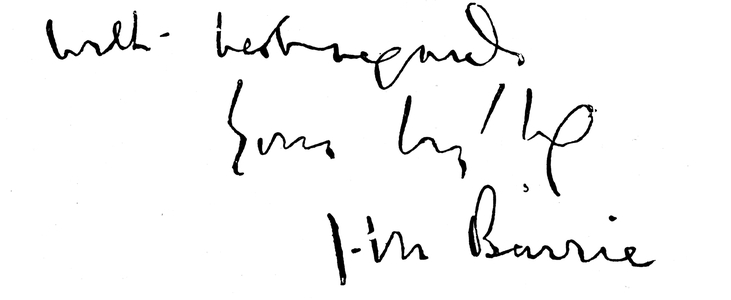 With best regards
Yours
J. M. Barrie